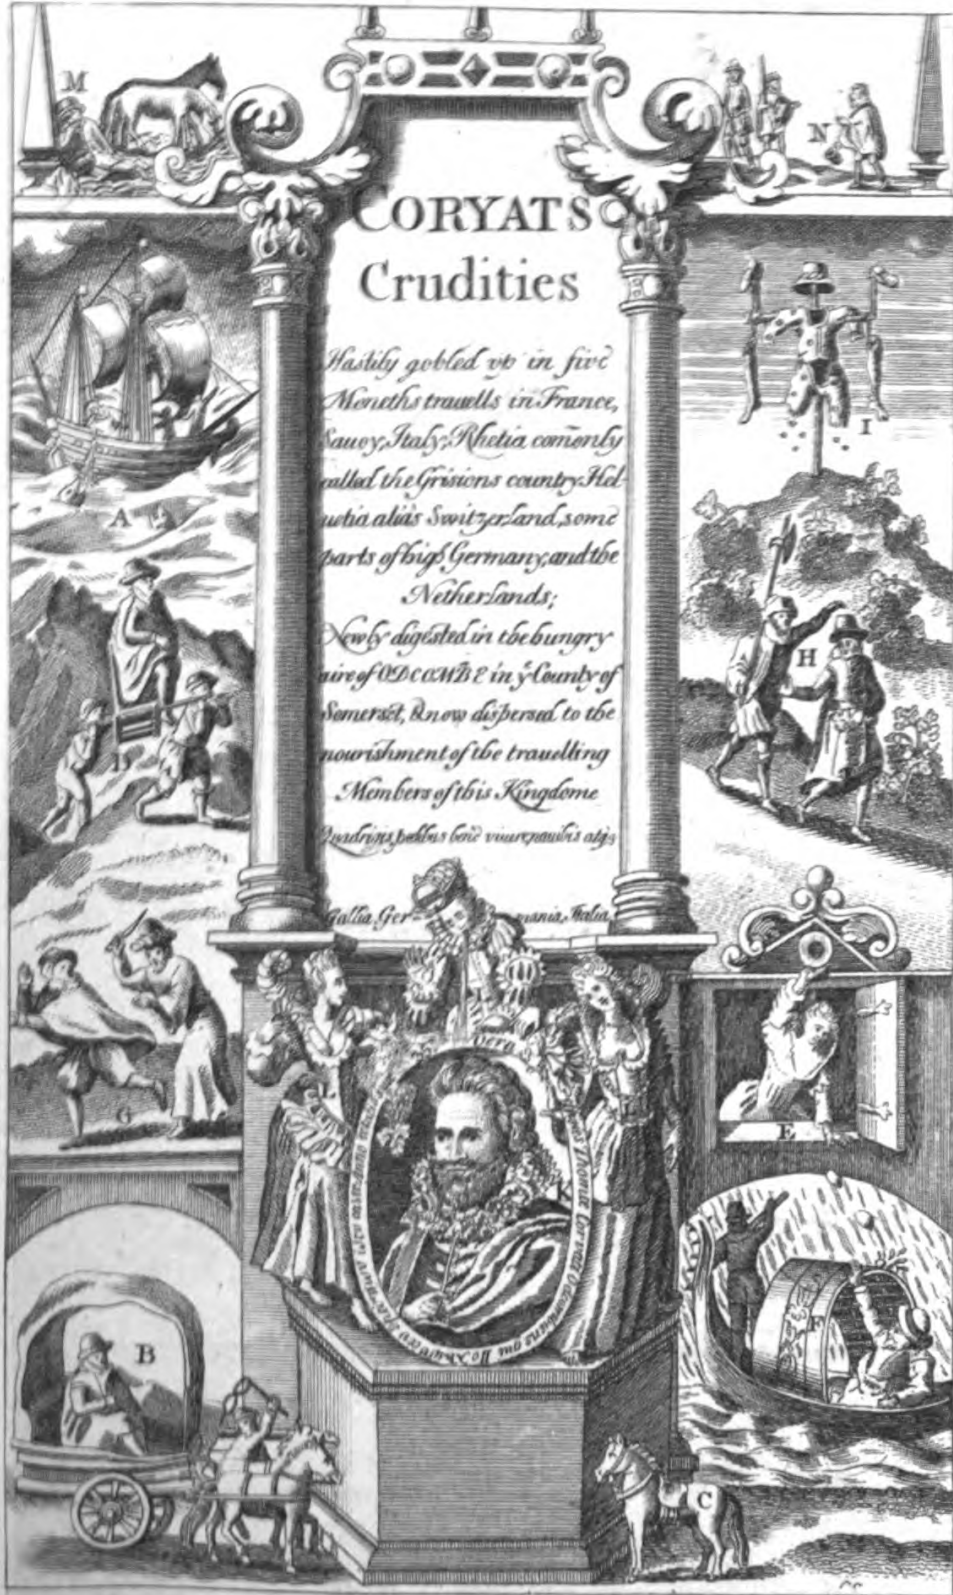 M
N
CORYATS
Crudities
Hastily gobled vp in five
Moneths trauells in France,
Sauoy, Italy, Rhetia comonly
called the Grisions country Hel-
uetia aliàs Switzerland, some
parts of high Germany, and the
Netherlands;
Newly digested in the hungry
aire of ODCOMBE in yͤ County of
Somerset, & now dispersed to the
nourishment of the trauelling
Members of this Kingdome
Quadrigis, pedibus benè viuere, nauibis atqȝ
Gallia, Ger- mania, Italia
A
I
D
H
G
E
B
F
C
K
Vera